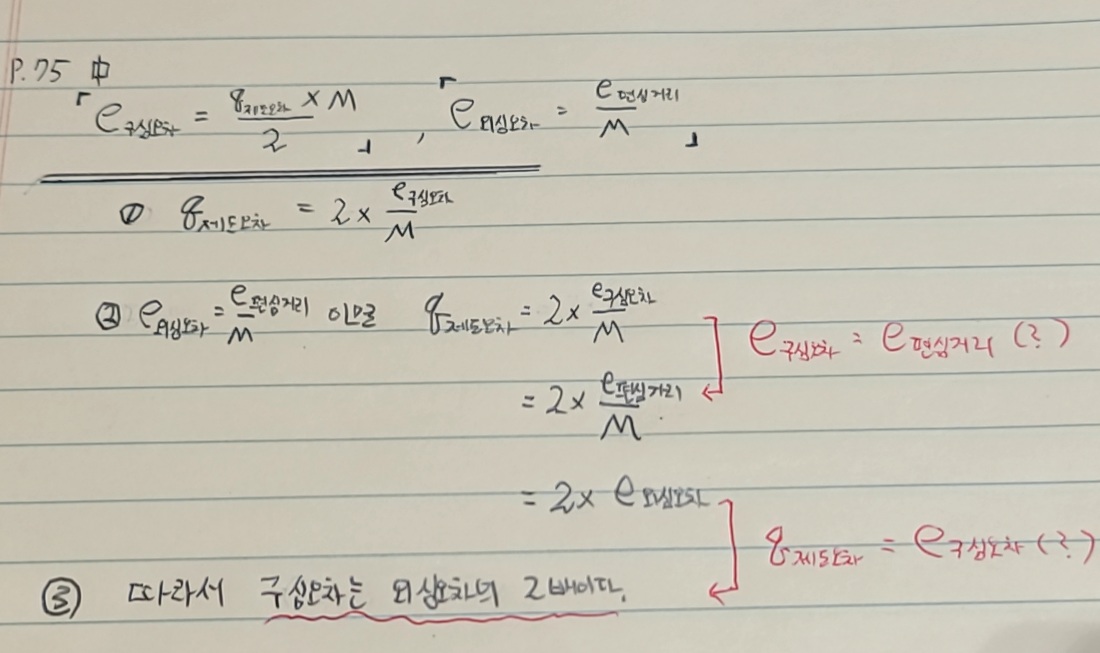 P.75 中
「e구심오차 = q제도오차 × M / 2 」 , 「e외심오차 = e편심거리 / M 」
① q제도오차 = 2 × e구심오차 / M
② e외심오차 = e편심거리 / M 이면 q제도오차 = 2 × e구심오차 / M
e구심오차 = e편심거리 (?)
= 2 × e편심거리 / M
= 2 × e외심오차
q제도오차 = e구심오차 (?)
③ 따라서 구심오차는 외심오차의 2배이다.